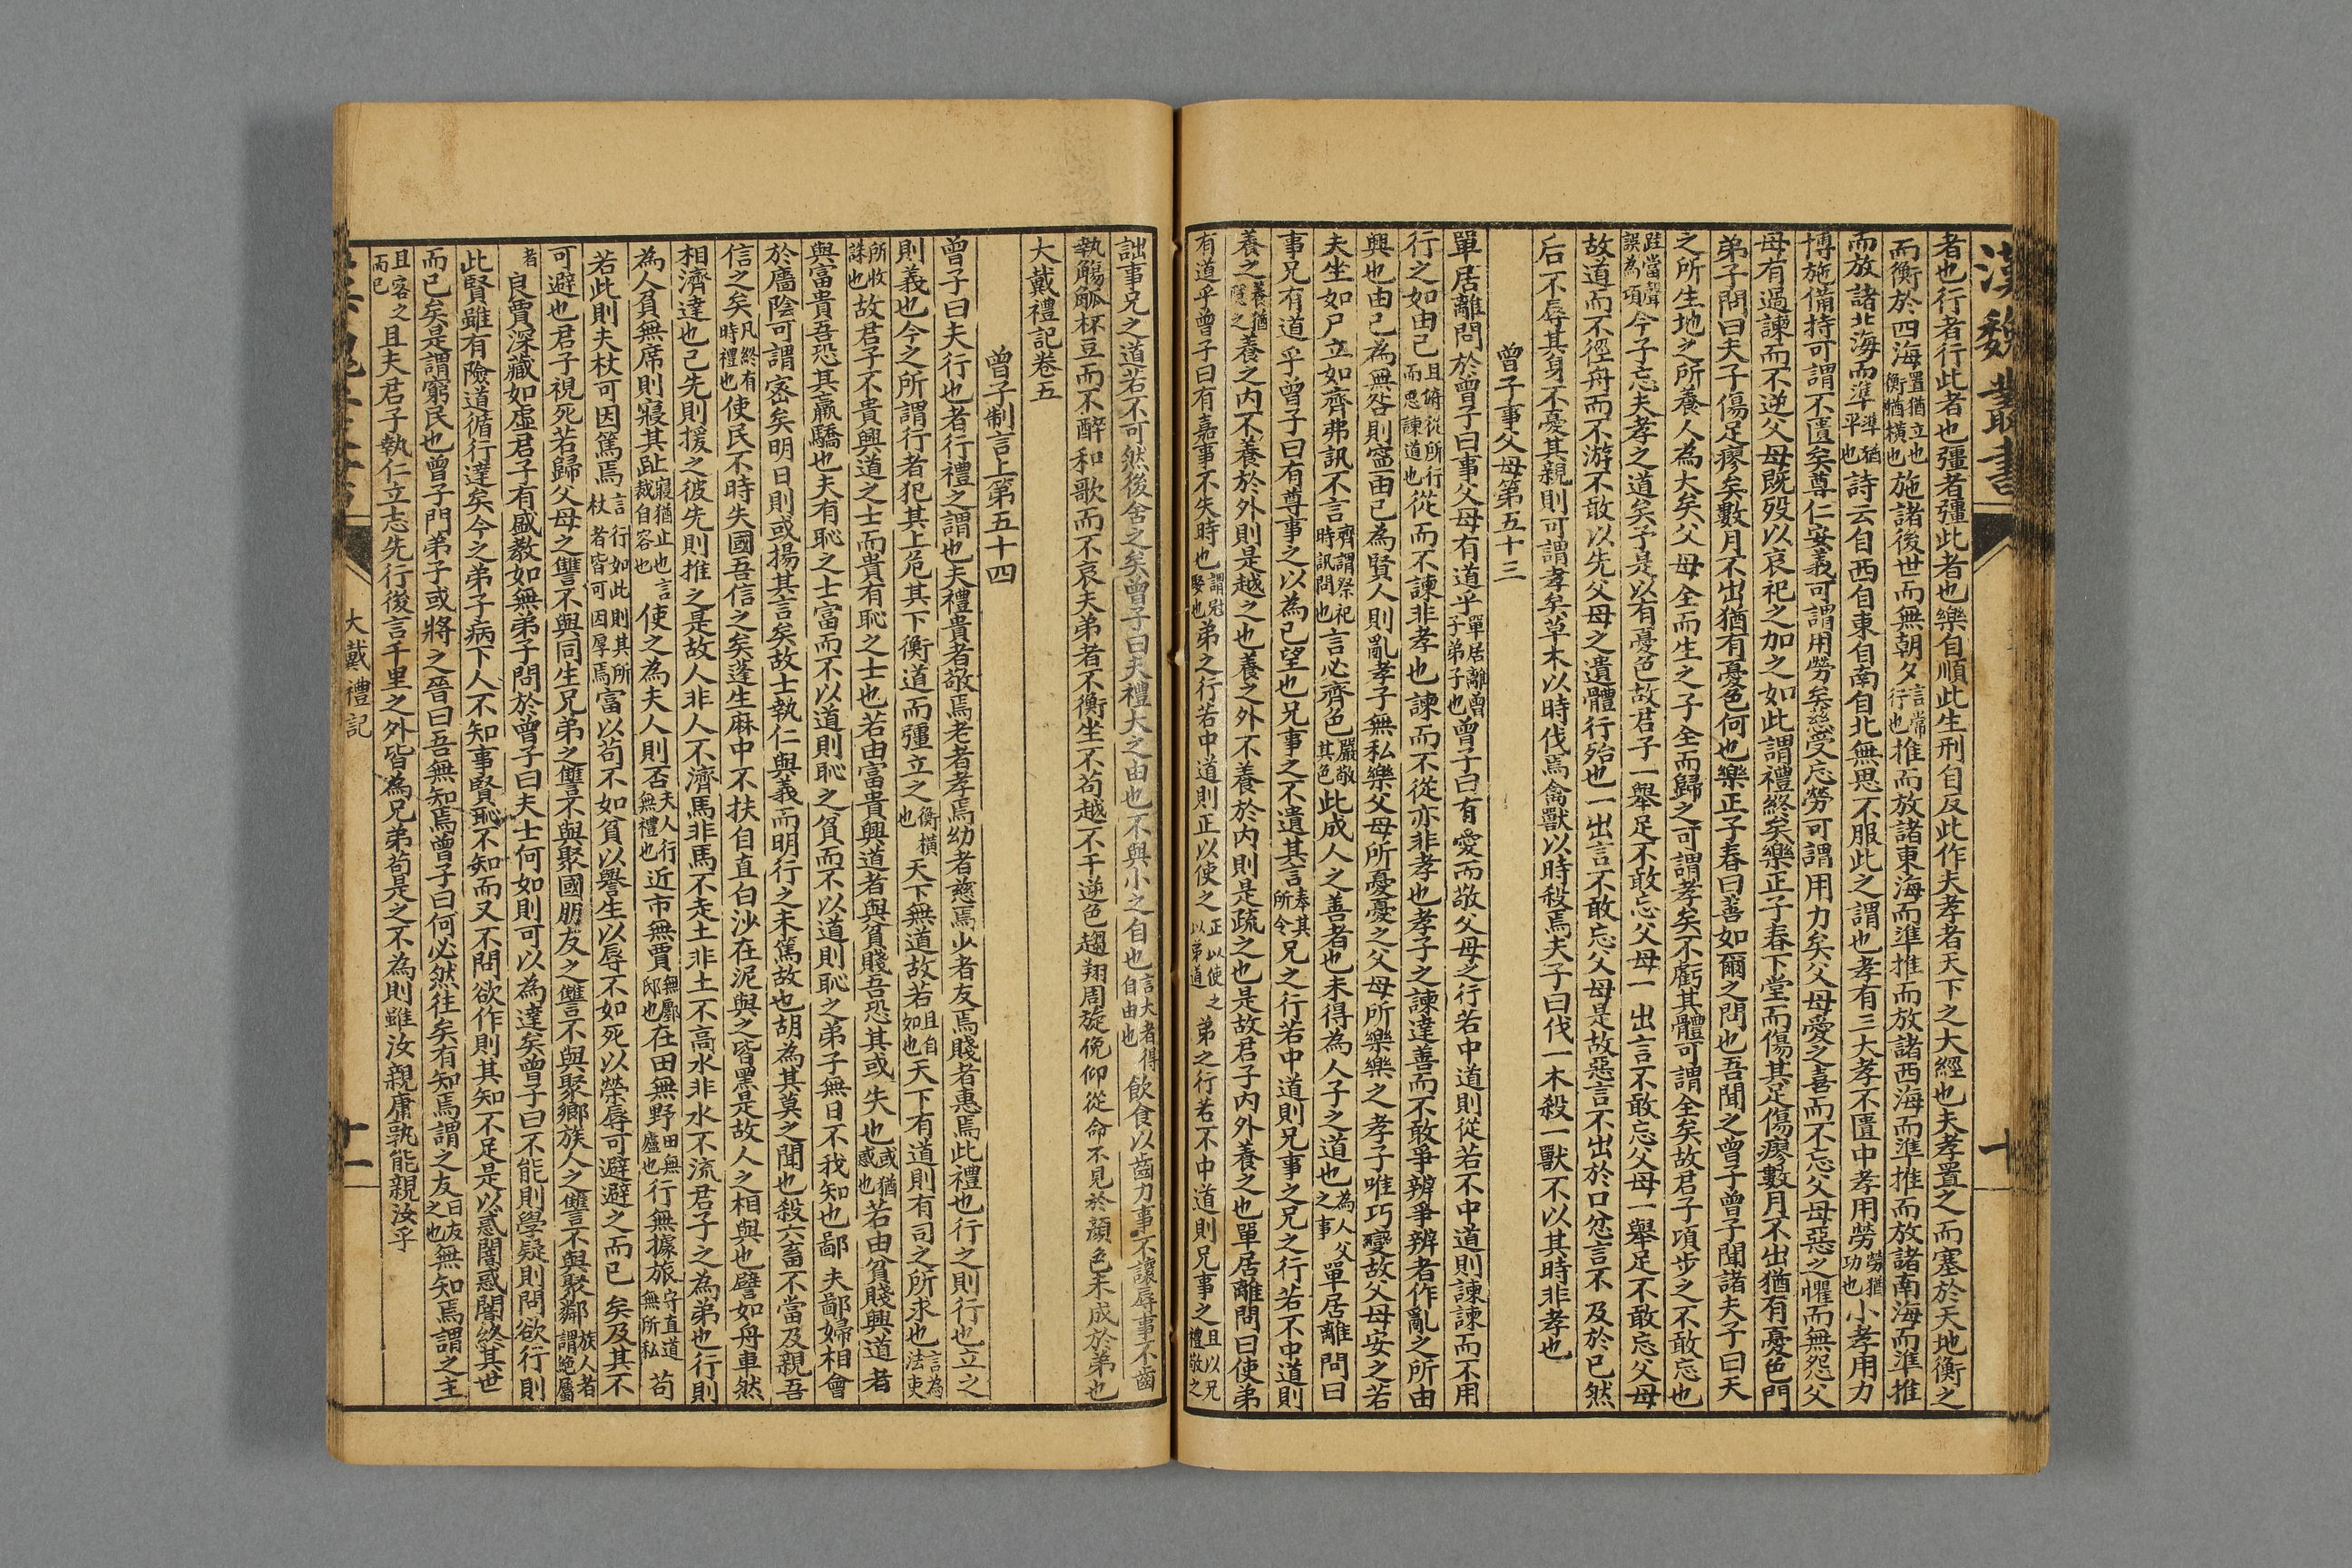 漢魏叢書
者也行者行此者也彊者彊此者也樂自順此生刑自反此作夫孝者天下之大經也夫孝置之而塞於天地衡之
而衡於四海置猶立也衡猶橫也施諸後世而無朝夕言常行也推而放諸東海而準推而放諸西海而準推而放諸南海而準推
而放諸北海而準準猶平也詩云自西自東自南自北無思不服此之謂也孝有三大孝不匱中孝用勞勞猶功也小孝用力
博施備持可謂不匱矣尊仁安義可謂用勞矣慈愛忘勞可謂用力矣父母愛之喜而不忘父母惡之懼而無怨父
母有過諫而不逆父母既歿以哀祀之加之如此謂禮終矣樂正子春下堂而傷其足傷瘳數月不出猶有憂色門
弟子問曰夫子傷足瘳矣數月不出猶有憂色何也樂正子春曰善如爾之問也吾聞之曾子曾子聞諸夫子曰天
之所生地之所養人為大矣父母全而生之子全而歸之可謂孝矣不虧其體可謂全矣故君子頃步之不敢忘也
跬當聲誤為頃今予忘夫孝之道矣予是以有憂色故君子一舉足不敢忘父母一出言不敢忘父母一舉足不敢忘父母
故道而不徑舟而不游不敢以先父母之遺體行殆也一出言不敢忘父母是故惡言不出於口忿言不及於已然
后不辱其身不憂其親則可謂孝矣草木以時伐焉禽獸以時殺焉夫子曰伐一木殺一獸不以其時非孝也
曾子事父母第五十三
單居離問於曾子曰事父母有道乎單居離曾子弟子也曾子曰有愛而敬父母之行若中道則從若不中道則諫諫而不用
行之如由己且俯從所行而思諫道也從而不諫非孝也諫而不從亦非孝也孝子之諫達善而不敢爭辨爭辨者作亂之所由
興也由己為無咎則寧由己為賢人則亂孝子無私樂父母所憂憂之父母所樂樂之孝子唯巧變故父母安之若
夫坐如尸立如齊弗訊不言齊謂祭祀時訊問也言必齊色嚴敬其色此成人之善者也未得為人子之道也為人父之事單居離問曰
事兄有道乎曾子曰有尊事之以為己望也兄事之不遺其言奉其所令兄之行若中道則兄事之兄之行若不中道則
養之養猶隱之養之內不養於外則是越之也養之外不養於內則是疏之也是故君子內外養之也單居離問曰使弟
有道乎曾子曰有嘉事不失時也謂冠娶也弟之行若中道則正以使之正以使之以弟道弟之行若不中道則兄事之且以兄禮敬之
十
詘事兄之道若不可然後舍之矣曾子曰夫禮大之由也不與小之自也言大者得自由也飲食以齒力事不讓辱事不齒
執觴觚杯豆而不醉和歌而不哀夫弟者不衡坐不苟越不干逆色趨翔周旋俛仰從命不見於顏色未成於弟也
大戴禮記卷五
曾子制言上第五十四
曾子曰夫行也者行禮之謂也夫禮貴者敬焉老者孝焉幼者慈焉少者友焉賤者惠焉此禮也行之則行也立之
則義也今之所謂行者犯其上危其下衡道而彊立之衡橫也天下無道故若且自如也天下有道則有司之所求也言為法吏
所收誅也故君子不貴興道之士而貴有恥之士也若由富貴興道者與貧賤吾恐其或失也或猶惑也若由貧賤興道者
與富貴吾恐其羸驕也夫有恥之士富而不以道則恥之貧而不以道則恥之弟子無曰不我知也鄙夫鄙婦相會
於廧陰可謂密矣明日則或揚其言矣故士執仁與義而明行之未篤故也胡為其莫之聞也殺六畜不當及親吾
信之矣凡終有時禮也使民不時失國吾信之矣蓬生麻中不扶自直白沙在泥與之皆黑是故人之相與也譬如舟車然
相濟達也己先則援之彼先則推之是故人非人不濟馬非馬不走土非土不高水非水不流君子之為弟也行則
為人負無席則寢其趾寢猶止也言裁自容也使之為夫人則否夫人行無禮也近市無賈無鄽邸也在田無野田無廬也行無據旅守直道無所私苟
若此則夫杖可因篤焉言行如此則其所杖者皆可因厚焉富以苟不如貧以譽生以辱不如死以榮辱可避避之而已矣及其不
可避也君子視死若歸父母之讐不與同生兄弟之讐不與聚國朋友之讐不與聚鄉族人之讐不與聚鄰族人者謂絕屬
者良賈深藏如虛君子有盛教如無弟子問於曾子曰夫士何如則可以為達矣曾子曰不能則學疑則問欲行則
此賢雖有險道循行達矣今之弟子病下人不知事賢恥不知而又不問欲作則其知不足是以惑闇惑闇終其世
而已矣是謂窮民也曾子門弟子或將之晉曰吾無知焉曾子曰何必然往矣有知焉謂之友曰友之也無知焉謂之主
且客之而已且夫君子執仁立志先行後言千里之外皆為兄弟苟是之不為則雖汝親庸孰能親汝乎
大戴禮記
十一